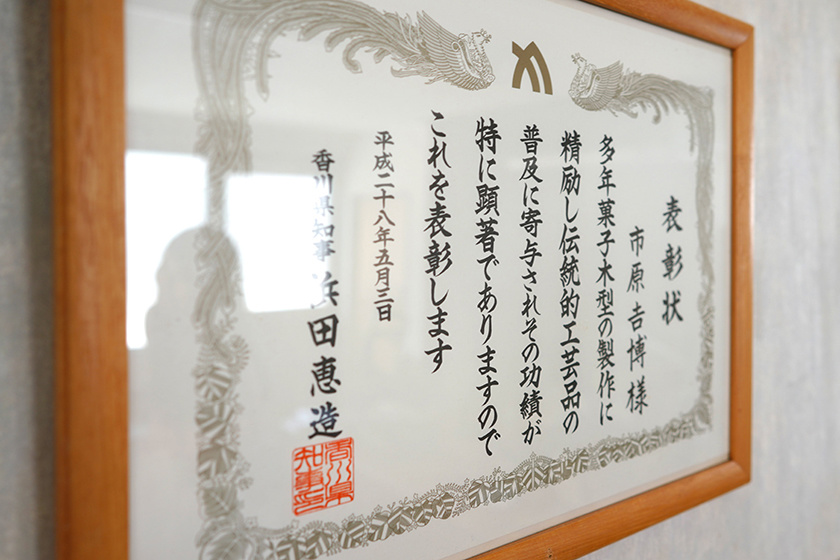 表彰状
市原吉博様
多年菓子木型の製作に
精励し伝統的工芸品の
普及に寄与されその功績が
特に顕著でありますので
これを表彰します
平成二十八年五月三日
香川県知事 浜田恵造
香川県
知事印